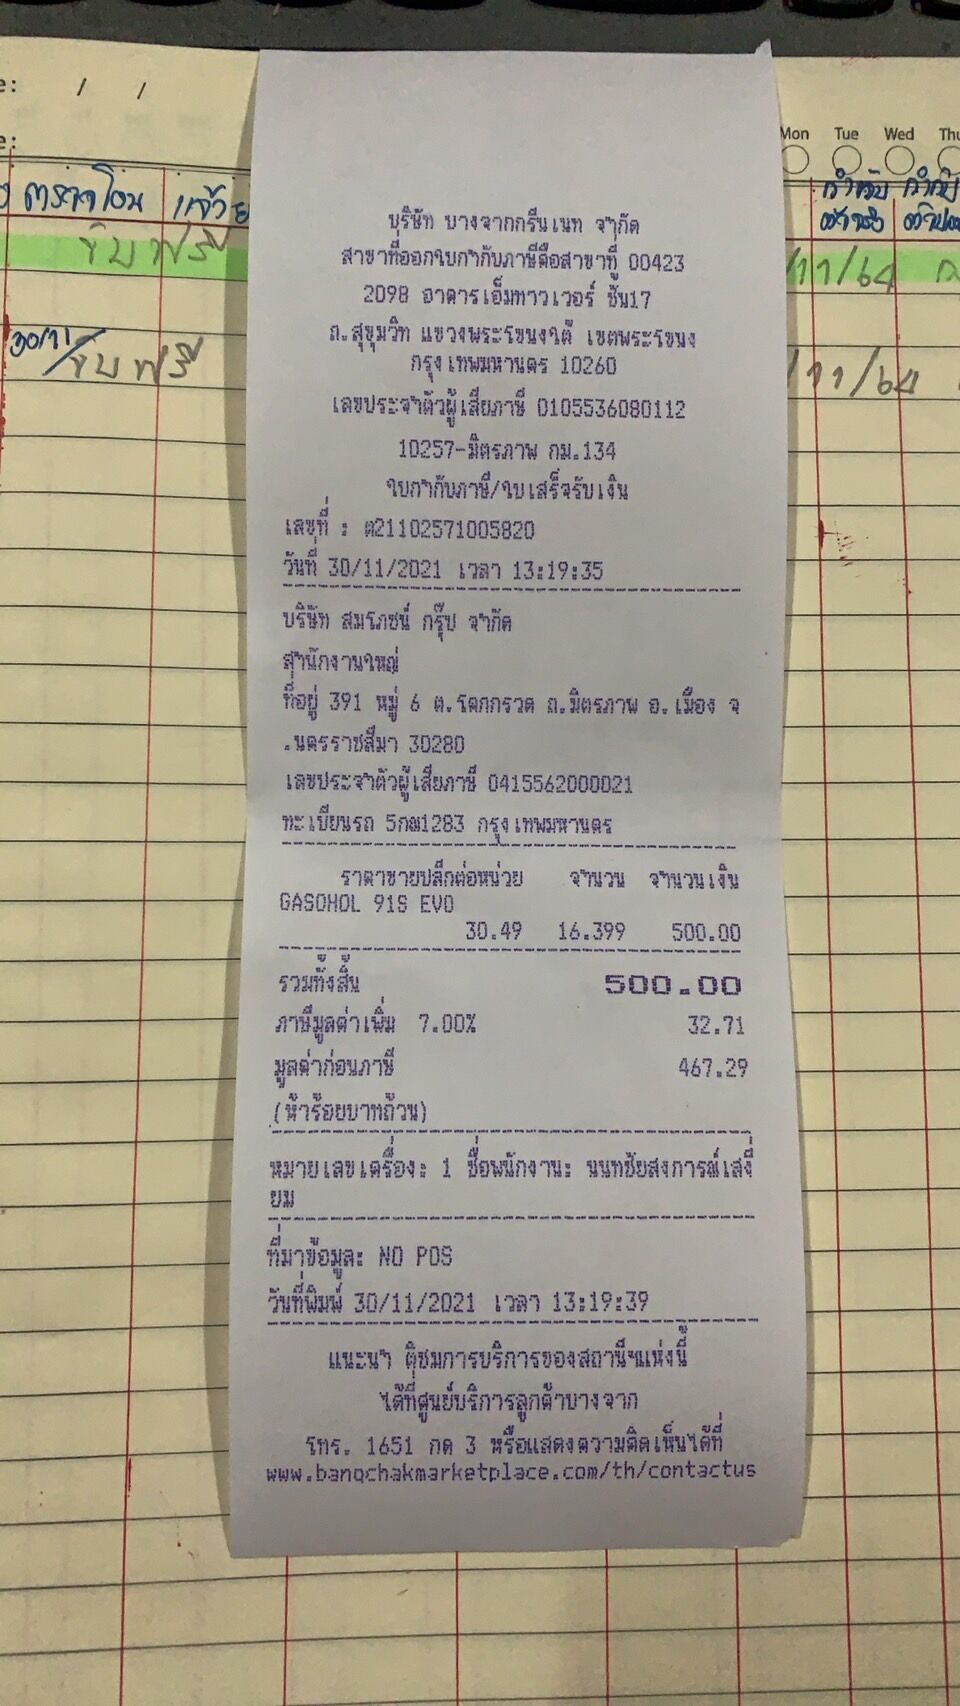 Mon Tue Wed
ตรวจโอน
ขับฟรี
11/64
30/11
ขับฟรี
11/64
บริษัท บางจากกรีนเนท จำกัด
สาขาที่ออกใบกำกับภาษีคือสาขาที่ 00423
2098 อาคารเอ็มทาวเวอร์ ชั้น17
ถ.สุขุมวิท แขวงพระโขนงใต้ เขตพระโขนง
กรุงเทพมหานคร 10260
เลขประจำตัวผู้เสียภาษี 0105536080112
10257-มิตรภาพ กม.134
ใบกำกับภาษี/ใบเสร็จรับเงิน
เลขที่ : ต21102571005820
วันที่ 30/11/2021 เวลา 13:19:35
บริษัท สมโภชน์ กรุ๊ป จำกัด
สำนักงานใหญ่
ที่อยู่ 391 หมู่ 6 ต.โคกกรวด ถ.มิตรภาพ อ.เมือง จ
.นครราชสีมา 30280
เลขประจำตัวผู้เสียภาษี 0415562000021
ทะเบียนรถ 5กฒ1283 กรุงเทพมหานคร
ราคาขายปลีกต่อหน่วย จำนวน จำนวนเงิน
GASOHOL 91S EVO
30.49 16.399 500.00
รวมทั้งสิ้น 500.00
ภาษีมูลค่าเพิ่ม 7.00% 32.71
มูลค่าก่อนภาษี 467.29
(ห้าร้อยบาทถ้วน)
หมายเลขเครื่อง: 1 ชื่อพนักงาน: นนทชัยสงการณ์เสงี่
ยม
ที่มาข้อมูล: NO POS
วันที่พิมพ์ 30/11/2021 เวลา 13:19:39
แนะนำ ติชมการบริการของสถานีฯแห่งนี้
ได้ที่ศูนย์บริการลูกค้าบางจาก
โทร. 1651 กด 3 หรือแสดงความคิดเห็นได้ที่
www.bangchakmarketplace.com/th/contactus